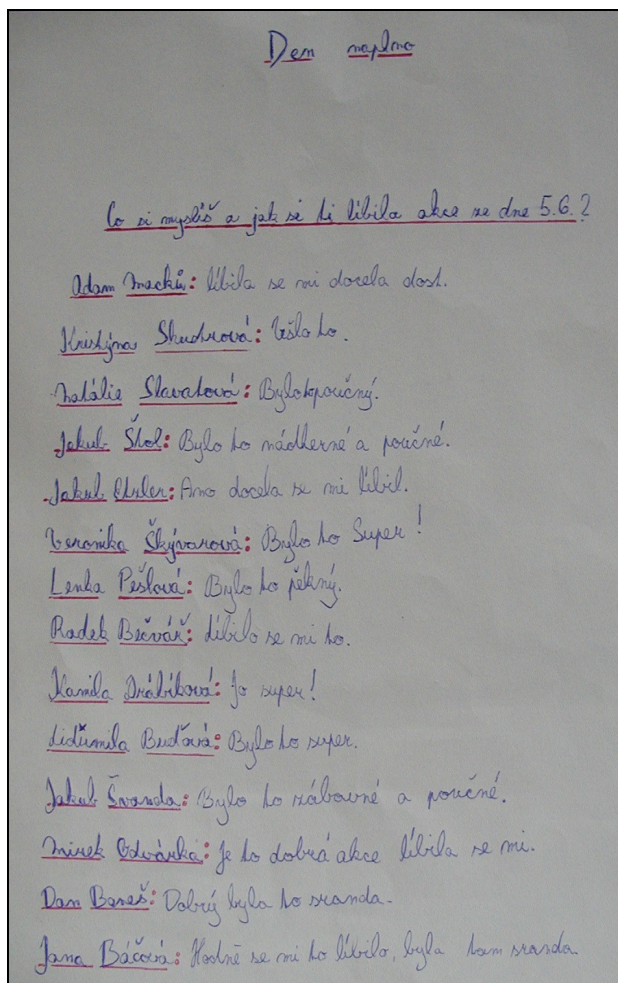 Den naplno
Co si myslíš a jak se ti líbila akce ze dne 5.6.?
Adam Macků: líbila se mi docela dost.
Kristýna Skudrová: Ušlo to.
Natálie Slavatová: Bylo to poučný.
Jakub Štol: Bylo to nádherné a poučné.
Jakub: Ano docela se mi líbil.
Veronika Škývarová: Bylo to Super!
Lenka Pešlová: Bylo to pěkný.
Radek Bečvář: Líbilo se mi to.
Kamila Drábíková: Jo super!
Lidumila Buďová: Bylo to super.
Jakub Švanda: Bylo to zábavné a poučné.
Mirek Odvárka: Je to dobrá akce líbila se mi.
Dan Baneš: Dobrý byla to sranda.
Jana Báčová: Hodně se mi to líbilo, byla tam sranda